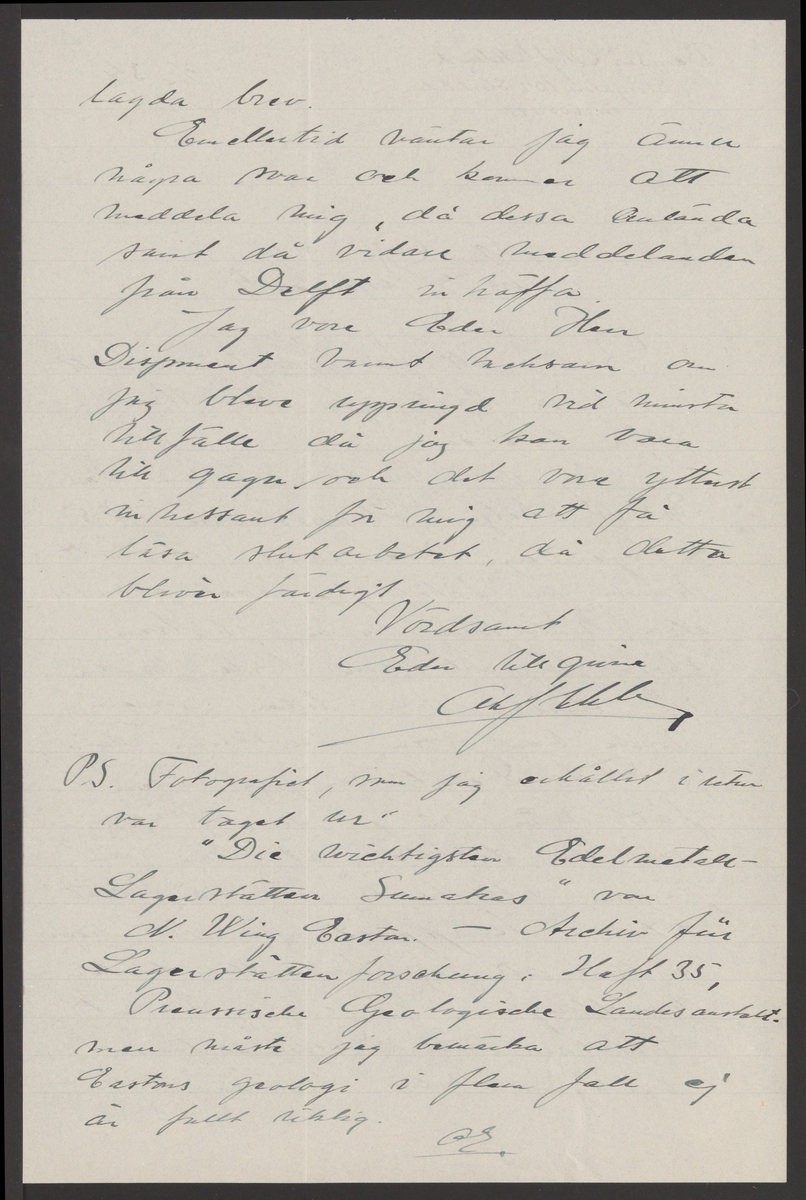 lagda brev.
Emellertid väntar jag ännu
några svar och kommer att
meddela mig, då dessa anlända
samt då vidare meddelanden
från Delft inträffa.
Jag vore Eder Herr
Disponent varmt tacksam om
jag bleve uppringd vid minsta
tillfälle då jag kan vara
till gagn och det vore ytterst
intressant för mig att få
läsa slutarbetet, då detta
blivit färdigt
Vördsamt
Eder tillgivne
P.S. Fotografiet, som jag erhållit i retur
var taget ur"
"Die wichtigsten Edelmetall-
Lagerstätten Sumatras" von
N. Wing Easton. — Archiv für
Lagerstättenforschung. Heft 35,
Preussische Geologische Landesanstalt.
men måste jag bemärka att
Eastons geologi i flera fall ej
är fullt riktig.